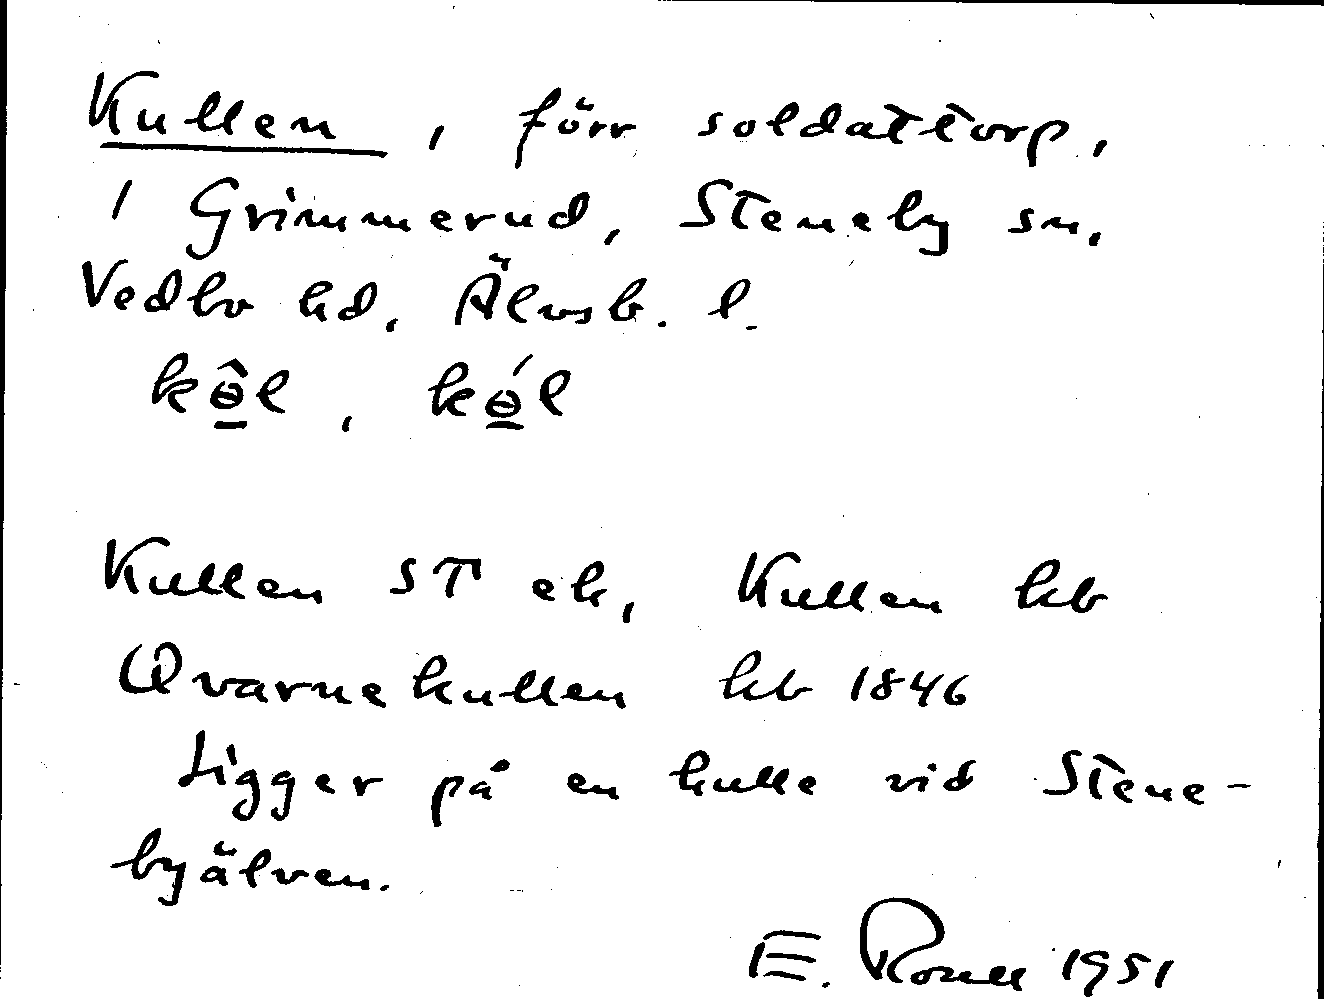 Kullen, förr soldattorp,
1 Grimmerud, Steneby sn,
Vedbo hd, Älvsb. l.
kɵ̠̂l, kɵ̠́l
Kullen ST ek, Kullen kb
Qvarnekullen kb 1846
Ligger på en kulle vid Stene-
byälven.
E. Rosell 1951